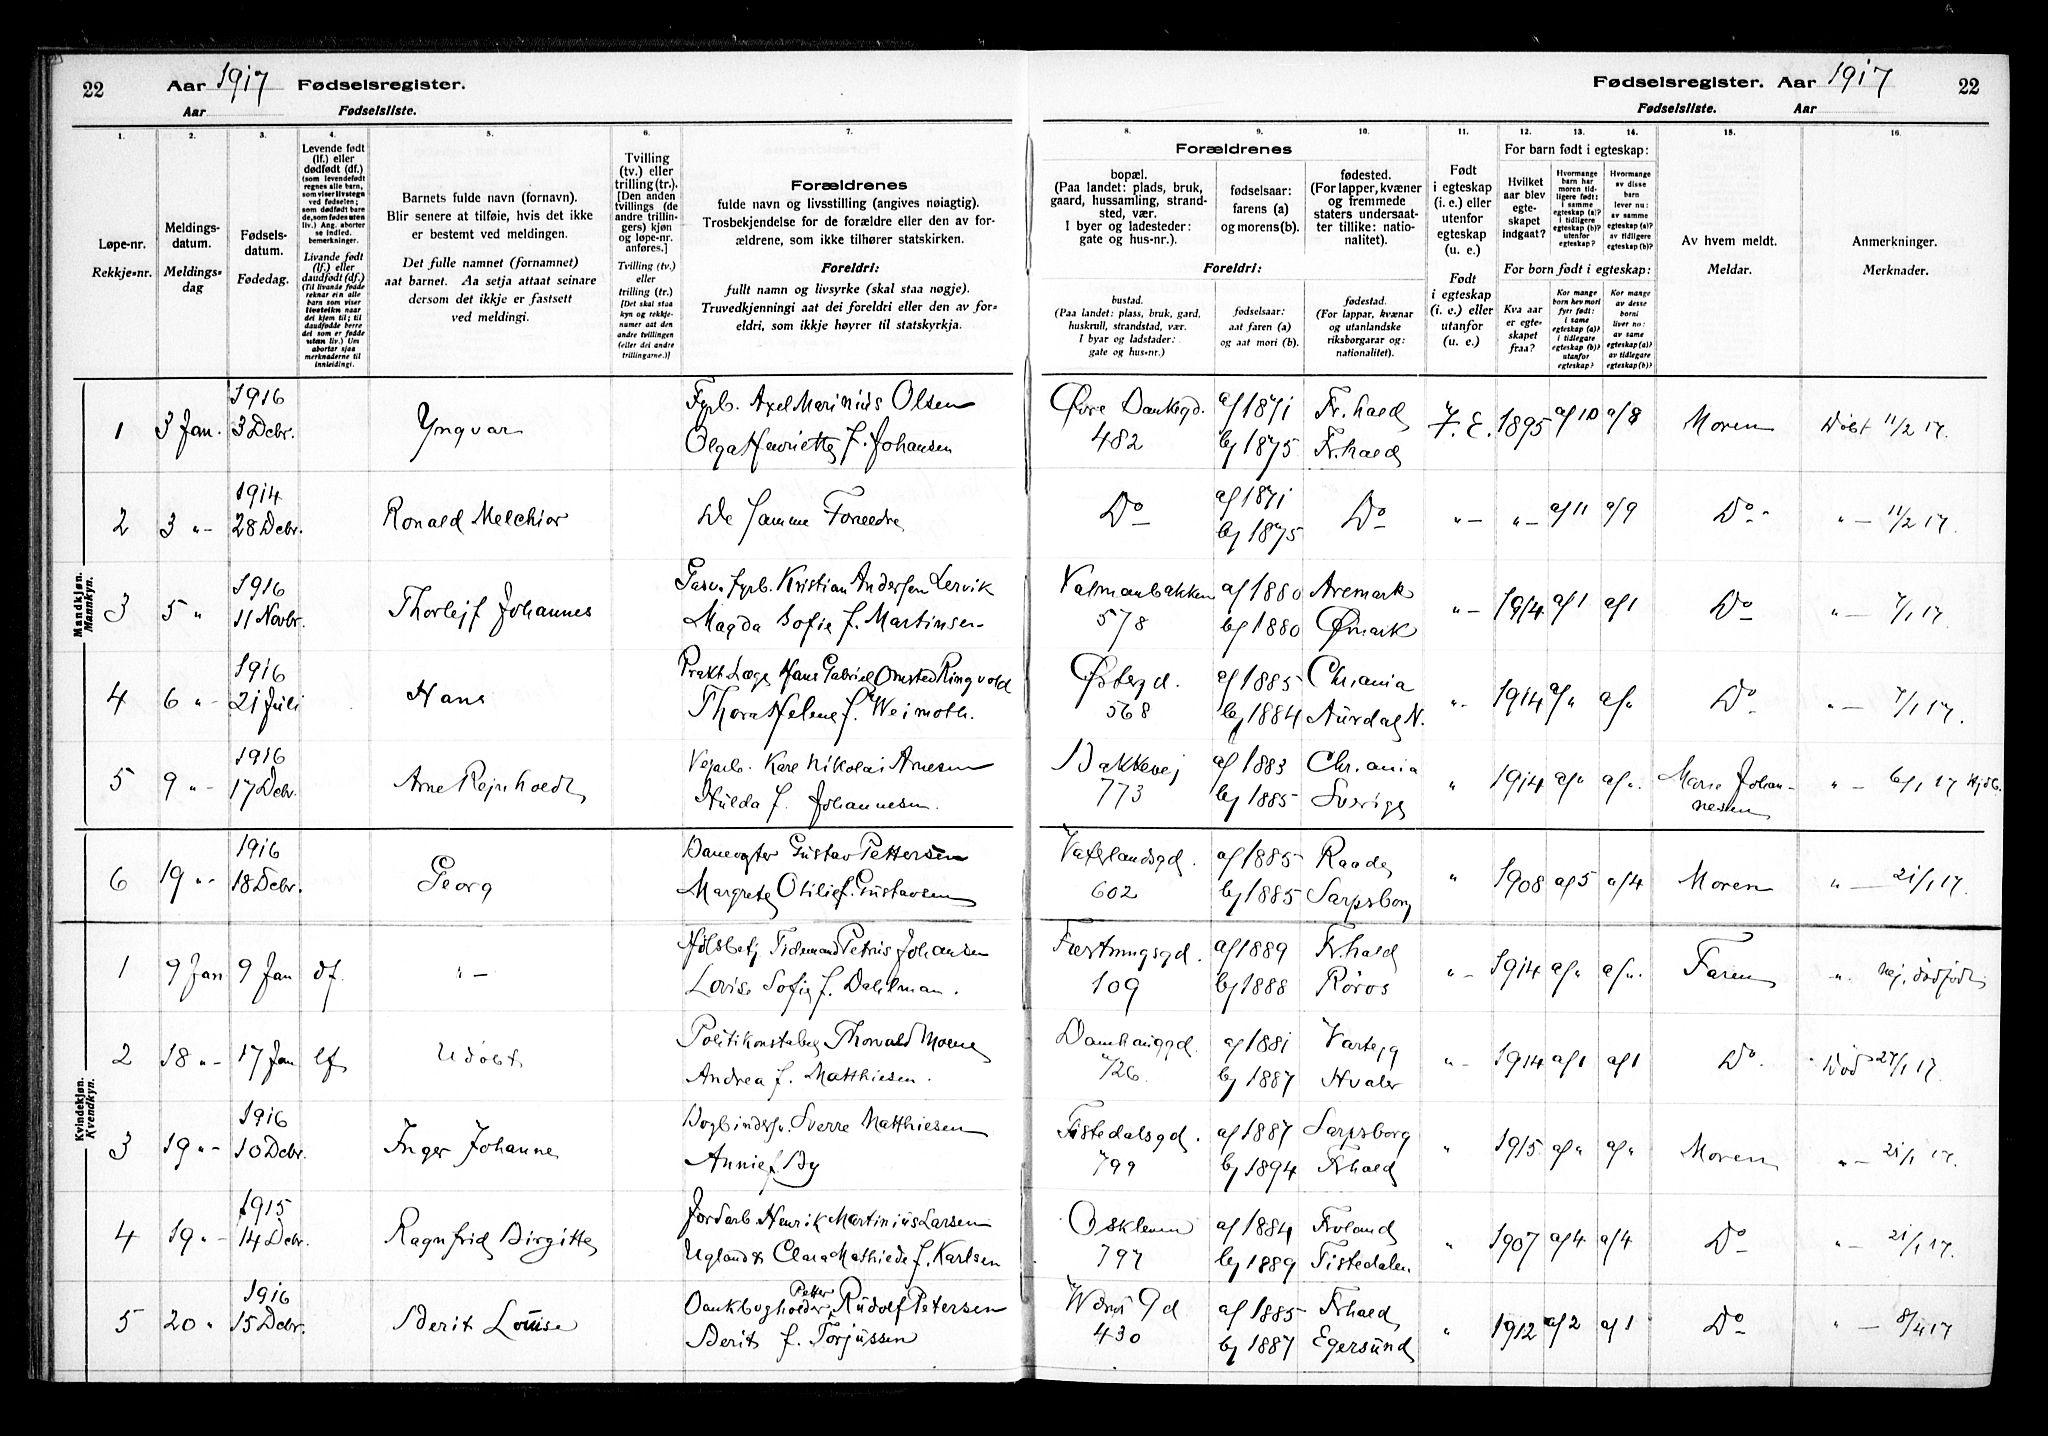 22 Aar 1917 Fødselsregister.
Aar Fødselsliste.
Fødselsregister. Aar 1917 22
Fødselsliste. Aar
1. 2. 3. 4. 5. 6. 7. 8. 9. 10. 11. 12. 13. 14. 15. 16.
Løpe-nr.
Rekkje-nr.
Meldings-
datum.
Meldings-
dag
Fødsels-
datum.
Fødedag.
Levende født
(lf.) eller
dødfødt (df.)
(som levendefødt
regnes alle barn,
som viser livstegn
ved fødselen;
som dødfødt bare
de, som fødes uten
liv.) Ang. aborter
se indled.
bemerkninger.
Livande født
(lf.) eller
daudfødt (df.)
(Til livande fødde
reknar ein alle
barn som viser
livsteikn naar
dei kjem til; til
daudfødde berre
dei som er fødde
utan liv.) Um
abortar sjaa
merknaderne til
innleidingi.
Barnets fulde navn (fornavn).
Blir senere at tilføie, hvis det ikke
er bestemt ved meldingen.
Det fulle namnet (fornamnet)
aat barnet. Aa setja attaat seinare
dersom det ikkje er fastsett
ved meldingi.
Tvilling
(tv.) eller
trilling (tr.).
[Den anden
tvillings (de
andre trillin-
gers) kjøn
og løpe-nr.
anføres.]
Tvilling (tv.)
eller
trilling (tr.)
[Det skal staa
kyn og rekkje-
numer aat den
andre tvillingen
(eller dei andre
trillingarne.)]
Forældrenes
fulde navn og livsstilling (angives nøiagtig).
Trosbekjendelse for de forældre eller den av for-
ældrene, som ikke tilhører statskirken.
Foreldri:
fullt namn og livsyrke (skal staa nøgje).
Truvedkjenningi aat dei foreldri eller den av for-
eldri, som ikkje høyrer til statskyrkja.
Forældrenes
bopæl.
(Paa landet: plads, bruk,
gaard, hussamling, strand-
sted, vær.
I byer og ladesteder:
gate og hus-nr.).
fødselsaar:
farens (a)
og morens (b).
fødested.
(For lapper, kvæner
og fremmede
staters undersaat-
ter tillike: natio-
nalitet).
Foreldri:
bustad.
(Paa landet: plass, bruk, gard,
huskrull, strandstad, vær.
I byar og ladstader:
gate og hus-nr.)
fødselsaar:
aat faren (a)
og aat mori (b).
fødestad.
(For lappar, kvænar
og utanlandske
riksborgarar og:
nationalitet).
Født
i egteskap
(i. e.) eller
utenfor
egteskap
(u. e.)
Født
i egteskap
(i. e.) eller
utanfor
(u. e.)
For barn født i egteskap:
Hvilket
aar blev
egte-
skapet
indgaat?
Hvormange
barn har
moren tid-
ligere født:
i samme
egteskap (a)?
i tidligere
egteskap (b)?
utenfor
egteskap?
Hvormange
av disse
barn
lever nu:
av samme
egteskap (a)?
av tidligere
egteskap (b)?
For born født i egteskap:
Kva aar
er egte-
skapet
fraa?
Kor mange
born hev mori
fyrr født:
i same
egteskap (a)?
i tidlegare
egteskap (b)?
utanfor
egteskap?
Kor mange
av desse
borni
liver no:
av same
egteskap (a)?
av tidlegare
egteskap (b)?
Av hvem meldt.
Meldar.
Anmerkninger.
Merknader.
Mandkjøn.
Mannkyn.
1 3 Jan. 1916 3 Debr. Yngvar Fyrb. Axel Marinius Olsen
Olga Henriette f. Johansen
Øvre Banksgd. 482 af 1871 bf 1875 Fr.hald Fr.hald F. E. 1895 af 10 af 8 Moren Døbt 11/2 17.
2 3 "- 1914 28 Debr. Ronald Melchior De samme Forældre Do af 1871 bf 1875 Do "- "- af 11 af 9 Do "- 11/2 17.
3 5 " 1916 11 Novbr. Thorleif Johannes Garv. fyrb. Kristian Andersen Lervik
Magda Sofie f. Martinsen
578 af 1880 bf 1880 Aremark Ømark "- 1914 af 1 af 1 Do "- 7/1 17.
4 6 "- 1916 21 Juli Hans Prakt. Læge Hans Gabriel Omsted Ringvold
Thora Helene f. Weimoth.
Østergd. 568 af 1885 bf 1884 Chr.ania Aurdal N. "- 1914 af " af " Do "- 7/1 17.
5 9 "- 1916 17 Debr. Arne Rejnholdt Vejarb. Karl Nikolai Arnesen
Hulda f. Johannesen.
Bakkevej 773 af 1883 bf 1885 Chr.ania Sverige " 1914 af " af ". Marie Johan-
nesen "-
6 19 "- 1916 18 Debr. Georg Banevogter Gustav Pettersen
Margrete Otilie f. Gustavsen
Vaterlandsgd. 602 af 1885 bf 1885 Raade Sarpsborg " 1908 af 5 af 4 Moren "- 21/1 17.
Kvindekjøn.
Kvendkyn.
1 9 Jan 9 Jan df. "- Tidemand Petrus Johansen
Lovise Sofie f. Dahlman.
Fæstningsgd. 109 af 1889 bf 1888 Fr.hald Røros "- 1914 af " af ". Faren " nej, dødfødt
2 18 "- 17 Jan lf Udøbt Politikonstabel Thorvald Moene
Andrea f. Matthiesen.
Damhauggd. 726 af 1881 bf 1887 Varteig Hvaler "- 1914 af 1 af 1 Do. Død 27/1 17.
3 19 "- 1916 10 Debr. Inger Johanne Bogbindersv. Sverre Matthiesen
Annie f. By
Tistedalsgd. 799 af 1887 bf 1894 Sarpsborg Fr.hald " 1915 af " af " Moren "- 21/1 17.
4 19 "- 1915 14 Debr. Ragnfrid Birgitte Jordarb. Henrik Martinius Larsen
Uglands Clara Mathilde f. Karlsen
Oskleven 797 af 1884 bf 1889 Froland Tistedalen " 1907 af 4 af 4 Do "- 21/1 17.
5 20 " 1916 15 Debr. Berit Louise Bankbogholder Petter Rudolf Petersen
Berit f. Torjussen
430 af 1885 bf 1887 Fr.hald, Egersund " 1912 af 2 af 1 Do "- 8/4 17